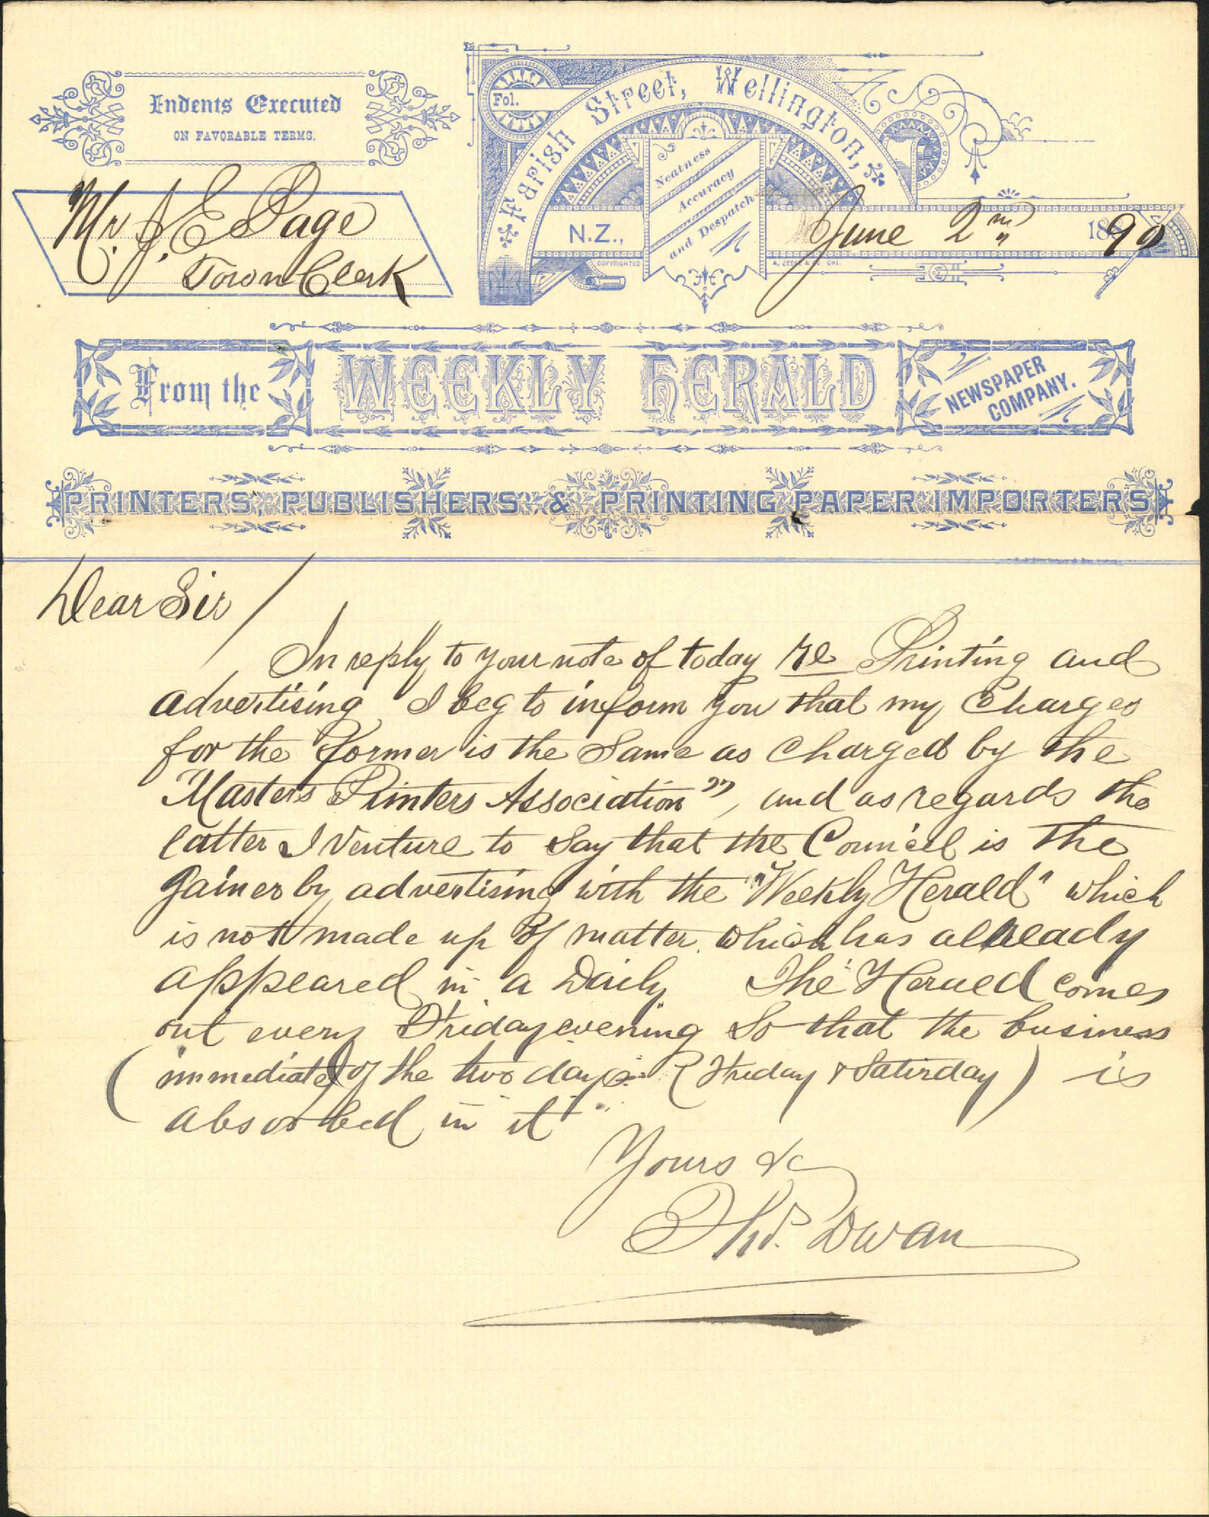 Indents Executed
ON FAVORABLE TERMS.
Fol.
Farish Street, Wellington,
Neatness
Accuracy
and Despatch
N.Z.,
COPYRIGHTED
June 2nd 1890
Mr. J. E. Page
Town Clerk
From the WEEKLY HERALD NEWSPAPER
COMPANY.
PRINTERS, PUBLISHERS & PRINTING PAPER IMPORTERS
Dear Sir/
In reply to your note of today re Printing and
advertising, I beg to inform you that my Charges
for the former is the same as charged by the
Masters Printers Association", and as regards the
latter I venture to say that the Council is the
gainer by advertising with the "Weekly Herald" which
is not made up of matter which has already
appeared in a Daily The Herald comes
out every Friday evening so that the business
(immediate) of the two days (Friday & Saturday) is
absorbed in it
Yours &c
Thos. Dwan